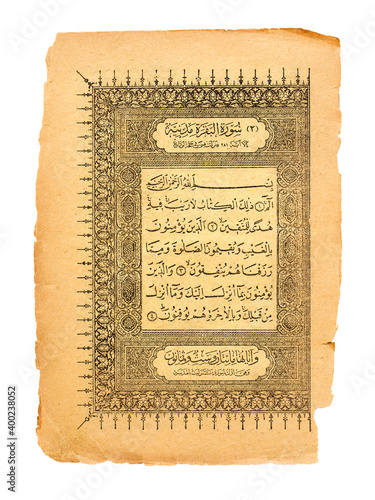 (٢) سُورَةُ البَقَرَةِ مَدَنِيَّة
بِسْمِ اللَّهِ الرَّحْمَنِ الرَّحِيمِ
الٓمٓ ١ ذَٰلِكَ الْكِتَابُ لَا رَيْبَ فِيهِ
هُدًى لِلْمُتَّقِينَ ٢ الَّذِينَ يُؤْمِنُونَ
بِالْغَيْبِ وَيُقِيمُونَ الصَّلَوٰةَ وَمِمَّا
رَزَقْنَاهُمْ يُنْفِقُونَ ٣ وَالَّذِينَ
يُؤْمِنُونَ بِمَا أُنْزِلَ إِلَيْكَ وَمَا أُنْزِلَ
مِنْ قَبْلِكَ وَبِالْآخِرَةِ هُمْ يُوقِنُونَ ٤
وآياتها مائتان وست وثمانون
Adobe Stock | #400238052